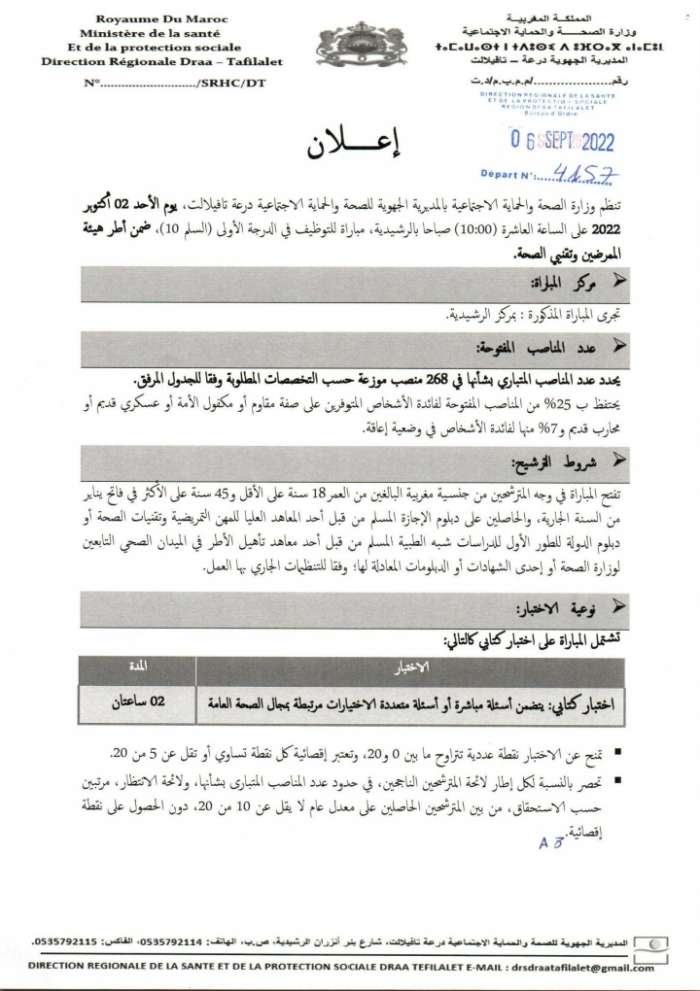 Royaume Du Maroc
Ministère de la santé
Et de la protection sociale
Direction Régionale Draa – Tafilalet
N°............................/SRHC/DT
المملكة المغربية
وزارة الصحـــة والحماية الاجتماعية
المديرية الجهوية درعة – تافيلالت
رقم......................../م.م.ب.م/د.ت
DIRECTION REGIONALE DE LA SANTE
ET DE LA PROTECTIO - SOCIALE
REGION DRAA TAFILALET
Bureau d'Ordre
06 SEPT 2022
Départ N°:....4157....
إعـــلان
تنظم وزارة الصحة والحماية الاجتماعية بالمديرية الجهوية للصحة والحماية الاجتماعية درعة تافيلالت، يوم الأحد 02 أكتوبر
2022 على الساعة العاشرة (10:00) صباحا بالرشيدية، مباراة للتوظيف في الدرجة الأولى (السلم 10)، ضمن أطر هيئة
الممرضين وتقنيي الصحة.
مركز المباراة:
تجرى المباراة المذكورة : بمركز الرشيدية.
عدد المناصب المفتوحة:
يحدد عدد المناصب المتبارى بشأنها في 268 منصب موزعة حسب التخصصات المطلوبة وفقا للجدول المرفق.
يحتفظ ب 25% من المناصب المفتوحة لفائدة الأشخاص المتوفرين على صفة مقاوم أو مكفول الأمة أو عسكري قديم أو
محارب قديم و7% منها لفائدة الأشخاص في وضعية إعاقة.
شروط الترشيح:
تفتح المباراة في وجه المترشحين من جنسية مغربية البالغين من العمر18 سنة على الأقل و45 سنة على الأكثر في فاتح يناير
من السنة الجارية، والحاصلين على دبلوم الإجازة المسلم من قبل أحد المعاهد العليا للمهن التمريضية وتقنيات الصحة أو
دبلوم الدولة للطور الأول للدراسات شبه الطبية المسلم من قبل أحد معاهد تأهيل الأطر في الميدان الصحي التابعين
لوزارة الصحة أو إحدى الشهادات أو الدبلومات المعادلة لها؛ وفقا للتنظيمات الجاري بها العمل.
نوعية الاختبار:
تشتمل المباراة على اختبار كتابي كالتالي:
الاختبار
المدة
اختبار كتابي: يتضمن أسئلة مباشرة أو أسئلة متعددة الاختيارات مرتبطة بمجال الصحة العامة
02 ساعتان
▪ تمنح عن الاختبار نقطة عددية تتراوح ما بين 0 و20، وتعتبر إقصائية كل نقطة تساوي أو تقل عن 5 من 20.
▪ تحصر بالنسبة لكل إطار لائحة المترشحين الناجحين، في حدود عدد المناصب المتبارى بشأنها، ولائحة الانتظار، مرتبين
حسب الاستحقاق، من بين المترشحين الحاصلين على معدل عام لا يقل عن 10 من 20، دون الحصول على نقطة
إقصائية.
المديرية الجهوية للصحة والحماية الاجتماعية درعة تافيلالت، شارع بئر أنزران الرشيدية، ص.ب، الهاتف: 0535792114، الفاكس: 0535792115.
DIRECTION REGIONALE DE LA SANTE ET DE LA PROTECTION SOCIALE DRAA TEFILALET E-MAIL : drsdraatafilalet@gmail.com